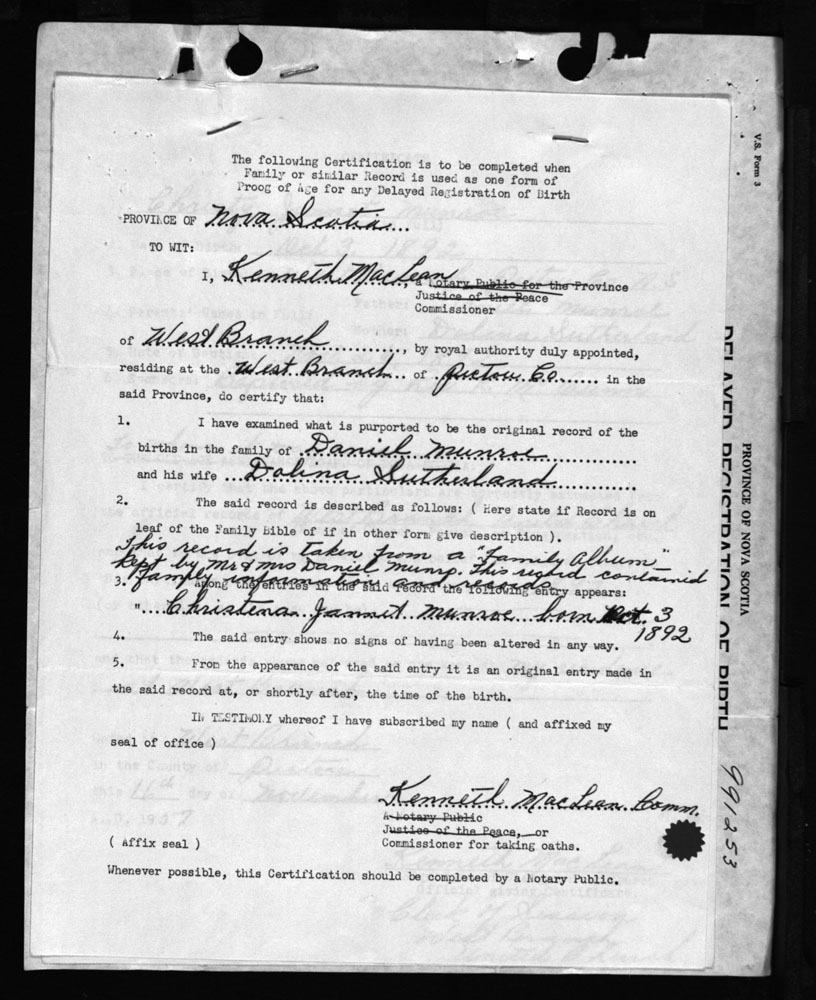 The following Certification is to be completed when
Family or similar Record is used as one form of
Proog of Age for any Delayed Registration of Birth
PROVINCE OF Nova Scotia
TO WIT:
I, Kenneth MacLean, a Notary Public for the Province
Justice of the Peace
Commissioner
of West Branch, by royal authority duly appointed,
residing at the West Branch of Pictou Co. in the
said Province, do certify that:
1. I have examined what is purported to be the original record of the
births in the family of Daniel Munroe
and his wife Dolina Sutherland
2. The said record is described as follows: ( Here state if Record is on
leaf of the Family Bible of if in other form give description ).
This record is taken from a "Family Album"
kept by Mr & Mrs Daniel Munro. This record contained
family information and records
3. Among the entries in the said record the following entry appears:
"....Christena Jannet Munroe born Oct. 3
1892
4. The said entry shows no signs of having been altered in any way.
5. From the appearance of the said entry it is an original entry made in
the said record at, or shortly after, the time of the birth.
IN TESTIMONY whereof I have subscribed my name ( and affixed my
seal of office )
Kenneth MacLean Comm.
A Notary Public
Justice of the Peace, or
( Affix seal ) Commissioner for taking oaths.
Whenever possible, this Certification should be completed by a Notary Public.
V.S. Form 3
PROVINCE OF NOVA SCOTIA
DELAYED REGISTRATION OF BIRTH
991253